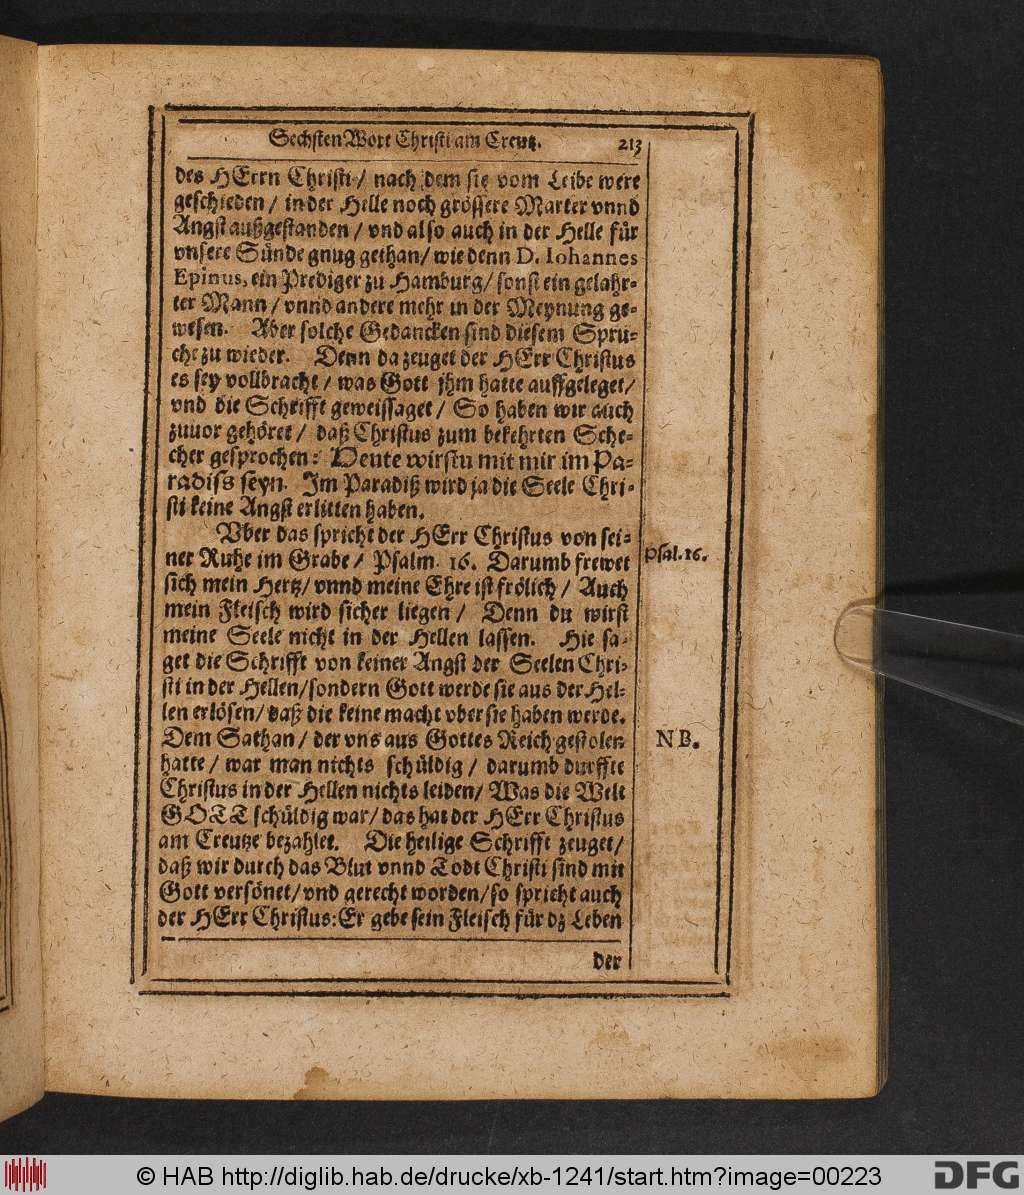 Sechsten Wort Christi am Creutz. 213
des HErrn Christi / nach dem sie vom Leibe were
geschieden / in der Helle noch grössere Marter vnnd
Angst außgestanden / vnd also auch in der Helle für
vnsere Sünde gnug gethan / wie denn D. Iohannes
Epinus, ein Prediger zu Hamburg / sonst ein gelahr-
ter Mann / vnnd andere mehr in der Meynung ge-
wesen. Aber solche Gedancken sind diesem Spru-
che zu wieder. Denn da zeuget der HErr Christus
es sey vollbracht / was Gott jhm hatte auffgeleget /
vnd die Schrifft geweissaget / So haben wir auch
zuuor gehöret / daß Christus zum bekehrten Sche-
cher gesprochen: Heute wirstu mit mir im Pa-
radiss seyn. Im Paradiß wird ja die Seele Chri-
sti keine Angst erlitten haben.
Vber das spricht der HErr Christus von sei-
ner Ruhe im Grabe / Psalm. 16. Darumb frewet
Psal. 16.
sich mein Hertz / vnnd meine Ehre ist frölich / Auch
mein Fleisch wird sicher liegen / Denn du wirst
meine Seele nicht in der Hellen lassen. Hie sa-
get die Schrifft von keiner Angst der Seelen Chri-
sti in der Hellen / sondern Gott werde sie aus der Hel-
len erlösen / daß die keine macht vber sie haben werde.
Dem Sathan / der vns aus Gottes Reich gestolen
NB.
hatte / war man nichts schüldig / darumb durffte
Christus in der Hellen nichts leiden / Was die Welt
GOTT schüldig war / das hat der HErr Christus
am Creutze bezahlet. Die heilige Schrifft zeuget /
daß wir durch das Blut vnnd Todt Christi sind mit
Gott versönet / vnd gerecht worden / so spricht auch
der HErr Christus: Er gebe sein Fleisch für dz Leben
der
© HAB http://diglib.hab.de/drucke/xb-1241/start.htm?image=00223
DFG